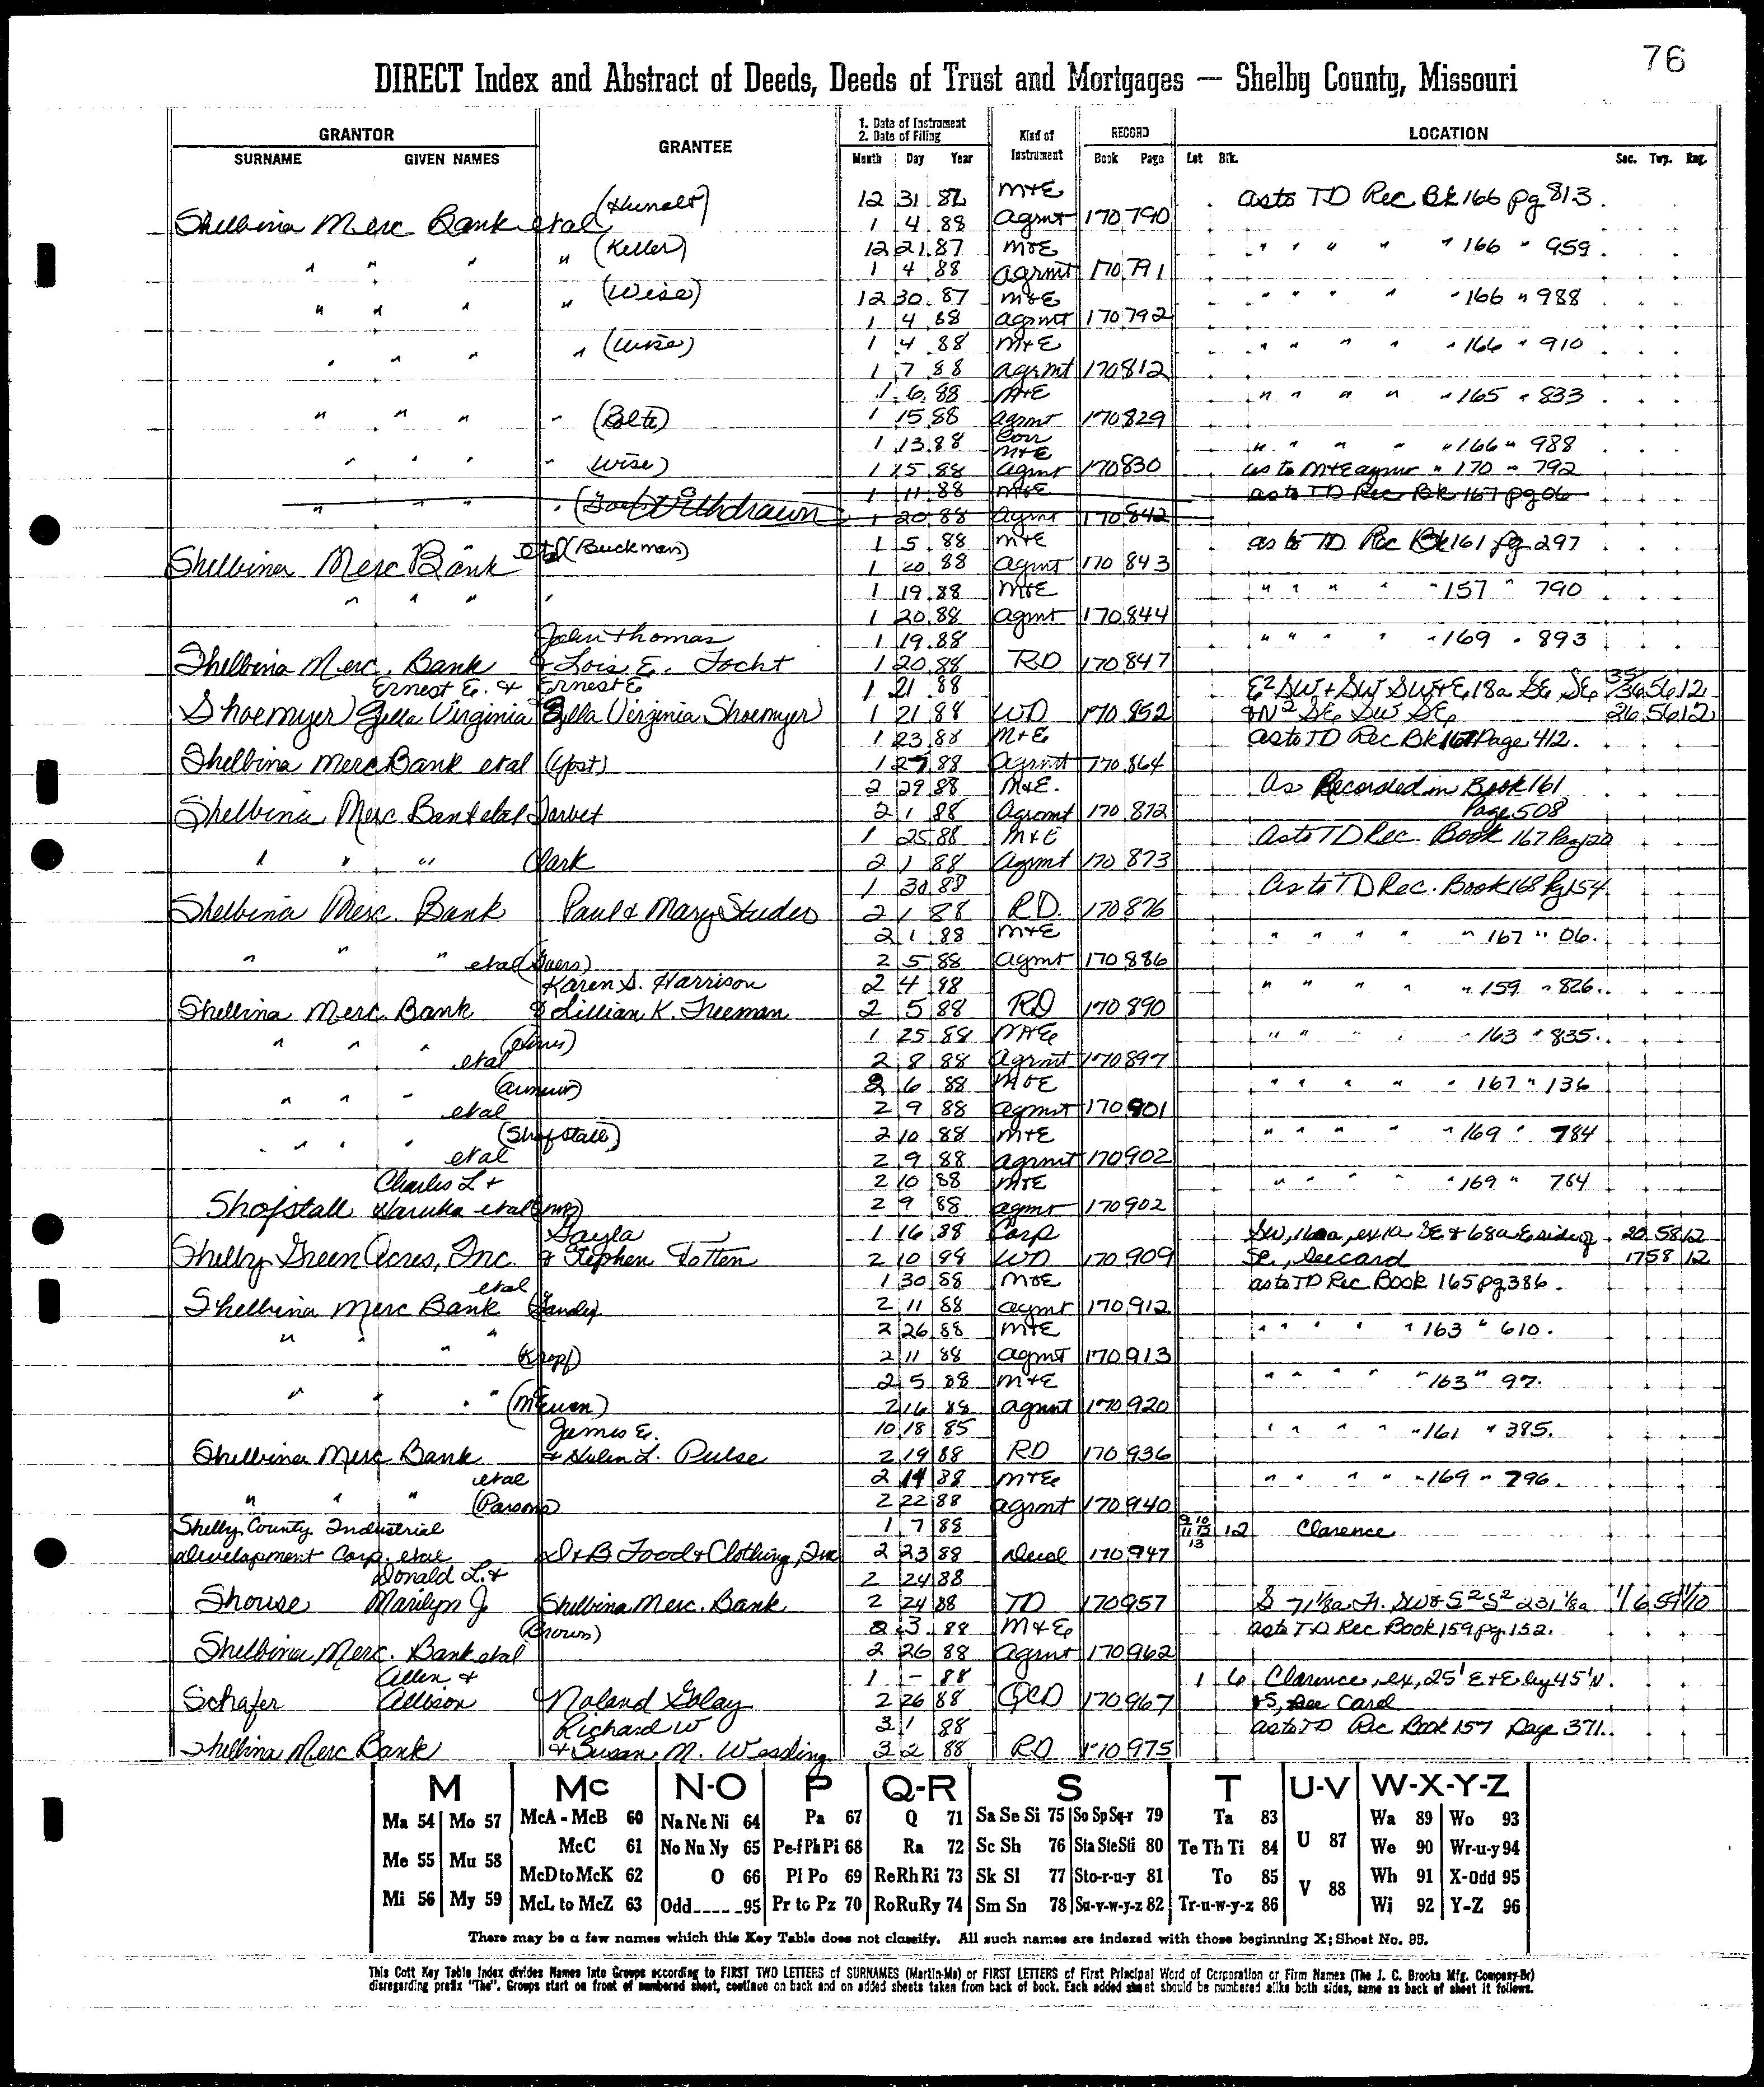 76
DIRECT Index and Abstract of Deeds, Deeds of Trust and Mortgages — Shelby County, Missouri
GRANTOR GRANTEE 1. Date of Instrument 2. Date of Filing Kind of Instrument RECORD LOCATION
SURNAME GIVEN NAMES Month Day Year Book Page Lot Blk. Sec. Twp. Rng.
12 31 87 M+E as to TD Rec Bk 166 pg 813.
Shelbina Merc Bank etal 1 4 88 Agmt 170 790
" " " " (Keller) 12 21 87 M&E " " " " " 166 " 959.
1 4 88 Agrmt 170 791
" " " " (Wise) 12 30 87 M&E " " " " " 166 " 988
1 4 88 Agrmt 170 792
" " " " (Wise) 1 4 88 M+E " " " " " 166 " 910
1 7 88 Agrmt 170 812
1 6 88 M+E " " " " " 165 " 833
" " " " (Bolte) 1 15 88 Agrmt 170 829
1 13 88 Corr M+E " " " " " 166 " 988
" " " " (Wise) 1 15 88 Agmt 170 830 as to M+E agmt " 170 " 792
1 11 88 M&E as to TD Rec Bk 167 pg 06
" " " " Withdrawn 1 20 88 Agmt 170 842
etal (Buckman) 1 5 88 M+E as to TD Rec Bk 161 pg 297
Shelbina Merc Bank 1 20 88 Agmt 170 843
" " " " 1 19 88 M&E " " " " " 157 " 790
1 20 88 Agmt 170 844
John Thomas 1 19 88 " " " " " 169 " 893
Shelbina Merc. Bank & Lois E. Tocht 1 20 88 RD 170 847
Ernest E. & Ernest E 1 21 88 E² SW + SW SW + E 18a SE SE 35 36 56 12
Shoemyer Zella Virginia Zella Virginia Shoemyer 1 21 88 WD 170 852 + N² SE SW SE 26 56 12
1 23 88 M+E as to TD Rec Bk 167 Page 412.
Shelbina Merc Bank etal (Yost) 1 27 88 Agrmt 170 864
2 29 88 M&E. As Recorded in Book 161
Shelbina Merc Bank etal Darbet 2 1 88 Agrmt 170 872 Page 508
1 25 88 M+E As to TD Rec. Book 167 Pg 120
" " " Clark 2 1 88 Agrmt 170 873
1 30 88 As to TD Rec. Book 168 Pg 154
Shelbina Merc. Bank Paul & Mary Studer 2 1 88 RD. 170 876
2 1 88 M+E " " " " " 167 " 06.
" " etal 2 5 88 Agmt 170 886
Karen S. Harrison 2 4 88 " " " " " 159 " 826.
Shelbina Merc. Bank & Lillian K. Freeman 2 5 88 RD 170 890
" " " 1 25 88 M+E " " " " " 163 " 835.
etal 2 8 88 Agrmt 170 897
" " " 2 6 88 M&E " " " " " 167 " 136
etal 2 9 88 Agmt 170 901
" " " (Shofstall) 2 10 88 M+E " " " " " 169 " 784
etal 2 9 88 Agrmt 170 902
Charles L + 2 10 88 M+E " " " " " 169 " 784
Shofstall Haruka etal 2 9 88 Agmt 170 902
Gayla 1 16 88 Corp SW, 160a, ex 1a SE & 68a E side of 20 58 12
Shelby Green Acres, Inc. & Stephen Totten 2 10 88 WD 170 909 SE, See card 17 58 12
etal 1 30 88 M&E as to TD Rec Book 165 pg 386.
Shelbina Merc Bank 2 11 88 Agmt 170 912
" " " 2 26 88 M+E " " " " " 163 " 610.
(Kropf) 2 11 88 Agmt 170 913
2 5 88 M+E " " " " " 163 " 97.
" " " (McEwen) 2 16 88 Agmt 170 920
James E. 10 18 85 " " " " " 161 " 385.
Shelbina Merc Bank & Helen L. Pulse 2 19 88 RD 170 936
etal 2 14 88 M+E " " " " " 169 " 796.
" " " (Parsons) 2 22 88 Agrmt 170 940
Shelby County Industrial 1 7 88 9 10 11 12 13 12 Clarence
Development Corp. etal D+B Food & Clothing, Inc 2 23 88 Deed 170 947
Donald L. & 2 24 88
Shouse Marilyn J Shelbina Merc. Bank 2 24 88 TD 170 957 S 71 1/8a Fr. SW & S² S² 231 1/8a 1/6 59 11/10
(Brown) 2 3 88 M&E as to TD Rec Book 159 pg. 152.
Shelbina Merc. Bank etal 2 26 88 Agmt 170 962
Allen & 1 - 88 1 6 Clarence, ex, 25' E+E by 45' N.
Schafer Allison Noland Golay 2 26 88 QCD 170 967 +S, see Card
Richard W 3 1 88 as to TD Rec Book 157 Page 371.
Shelbina Merc Bank & Susan M. Wessling 3 2 88 RD 170 975
M Mc N-O P Q-R S T U-V W-X-Y-Z
Ma 54 Mo 57 McA - McB 60 Na Ne Ni 64 Pa 67 Q 71 Sa Se Si 75 So Sp Sq-r 79 Ta 83 U 87 Wa 89 Wo 93
Me 55 Mu 58 McC 61 No Nu Ny 65 Pe-f Ph Pi 68 Ra 72 Sc Sh 76 Sta Ste Sti 80 Te Th Ti 84 V 88 We 90 Wr-u-y 94
McD to McK 62 O 66 Pl Po 69 Re Rh Ri 73 Sk Sl 77 Sto-r-u-y 81 To 85 Wh 91 X-Odd 95
Mi 56 My 59 McL to McZ 63 Odd 95 Pr to Pz 70 Ro Ru Ry 74 Sm Sn 78 Su-v-w-y-z 82 Tr-u-w-y-z 86 Wi 92 Y-Z 96
There may be a few names which this Key Table does not classify. All such names are indexed with those beginning X; Sheet No. 95.
This Cott Key Table Index divides Names into Groups according to FIRST TWO LETTERS of SURNAMES (Martin-Ma) or FIRST LETTERS of First Principal Word of Corporation or Firm Names (The J. C. Brooks Mfg. Company-Br)
disregarding prefix "The". Groups start on front of numbered sheet, continue on back and on added sheets taken from back of book. Each added sheet should be numbered alike both sides, same as back of sheet it follows.